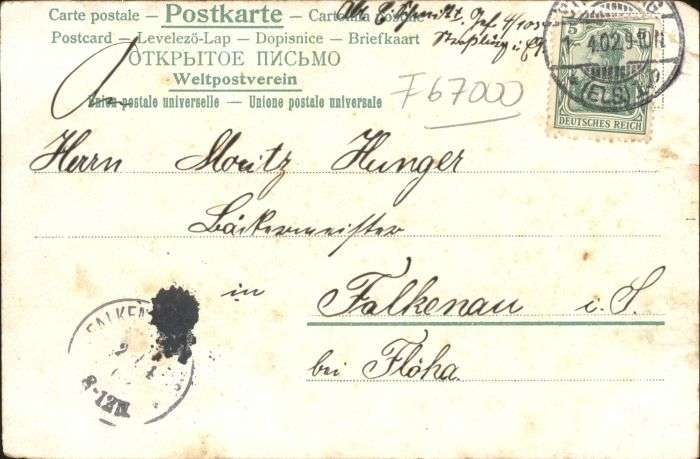 Carte postale — Postkarte — Cartolina postale
Abs. E. Schmidt.
Postcard — Levelező-Lap — Dopisnice — Briefkaart
ОТКРЫТОЕ ПИСЬМО
Weltpostverein
Union postale universelle — Union postale universale
F67000
5
1 4.02.9-10N.
(ELS)
DEUTSCHES REICH
Herrn Moritz Hunger
Bäckermeister
in Falkenau i. S.
bei Flöha
FALKEN
2 4
8-12N